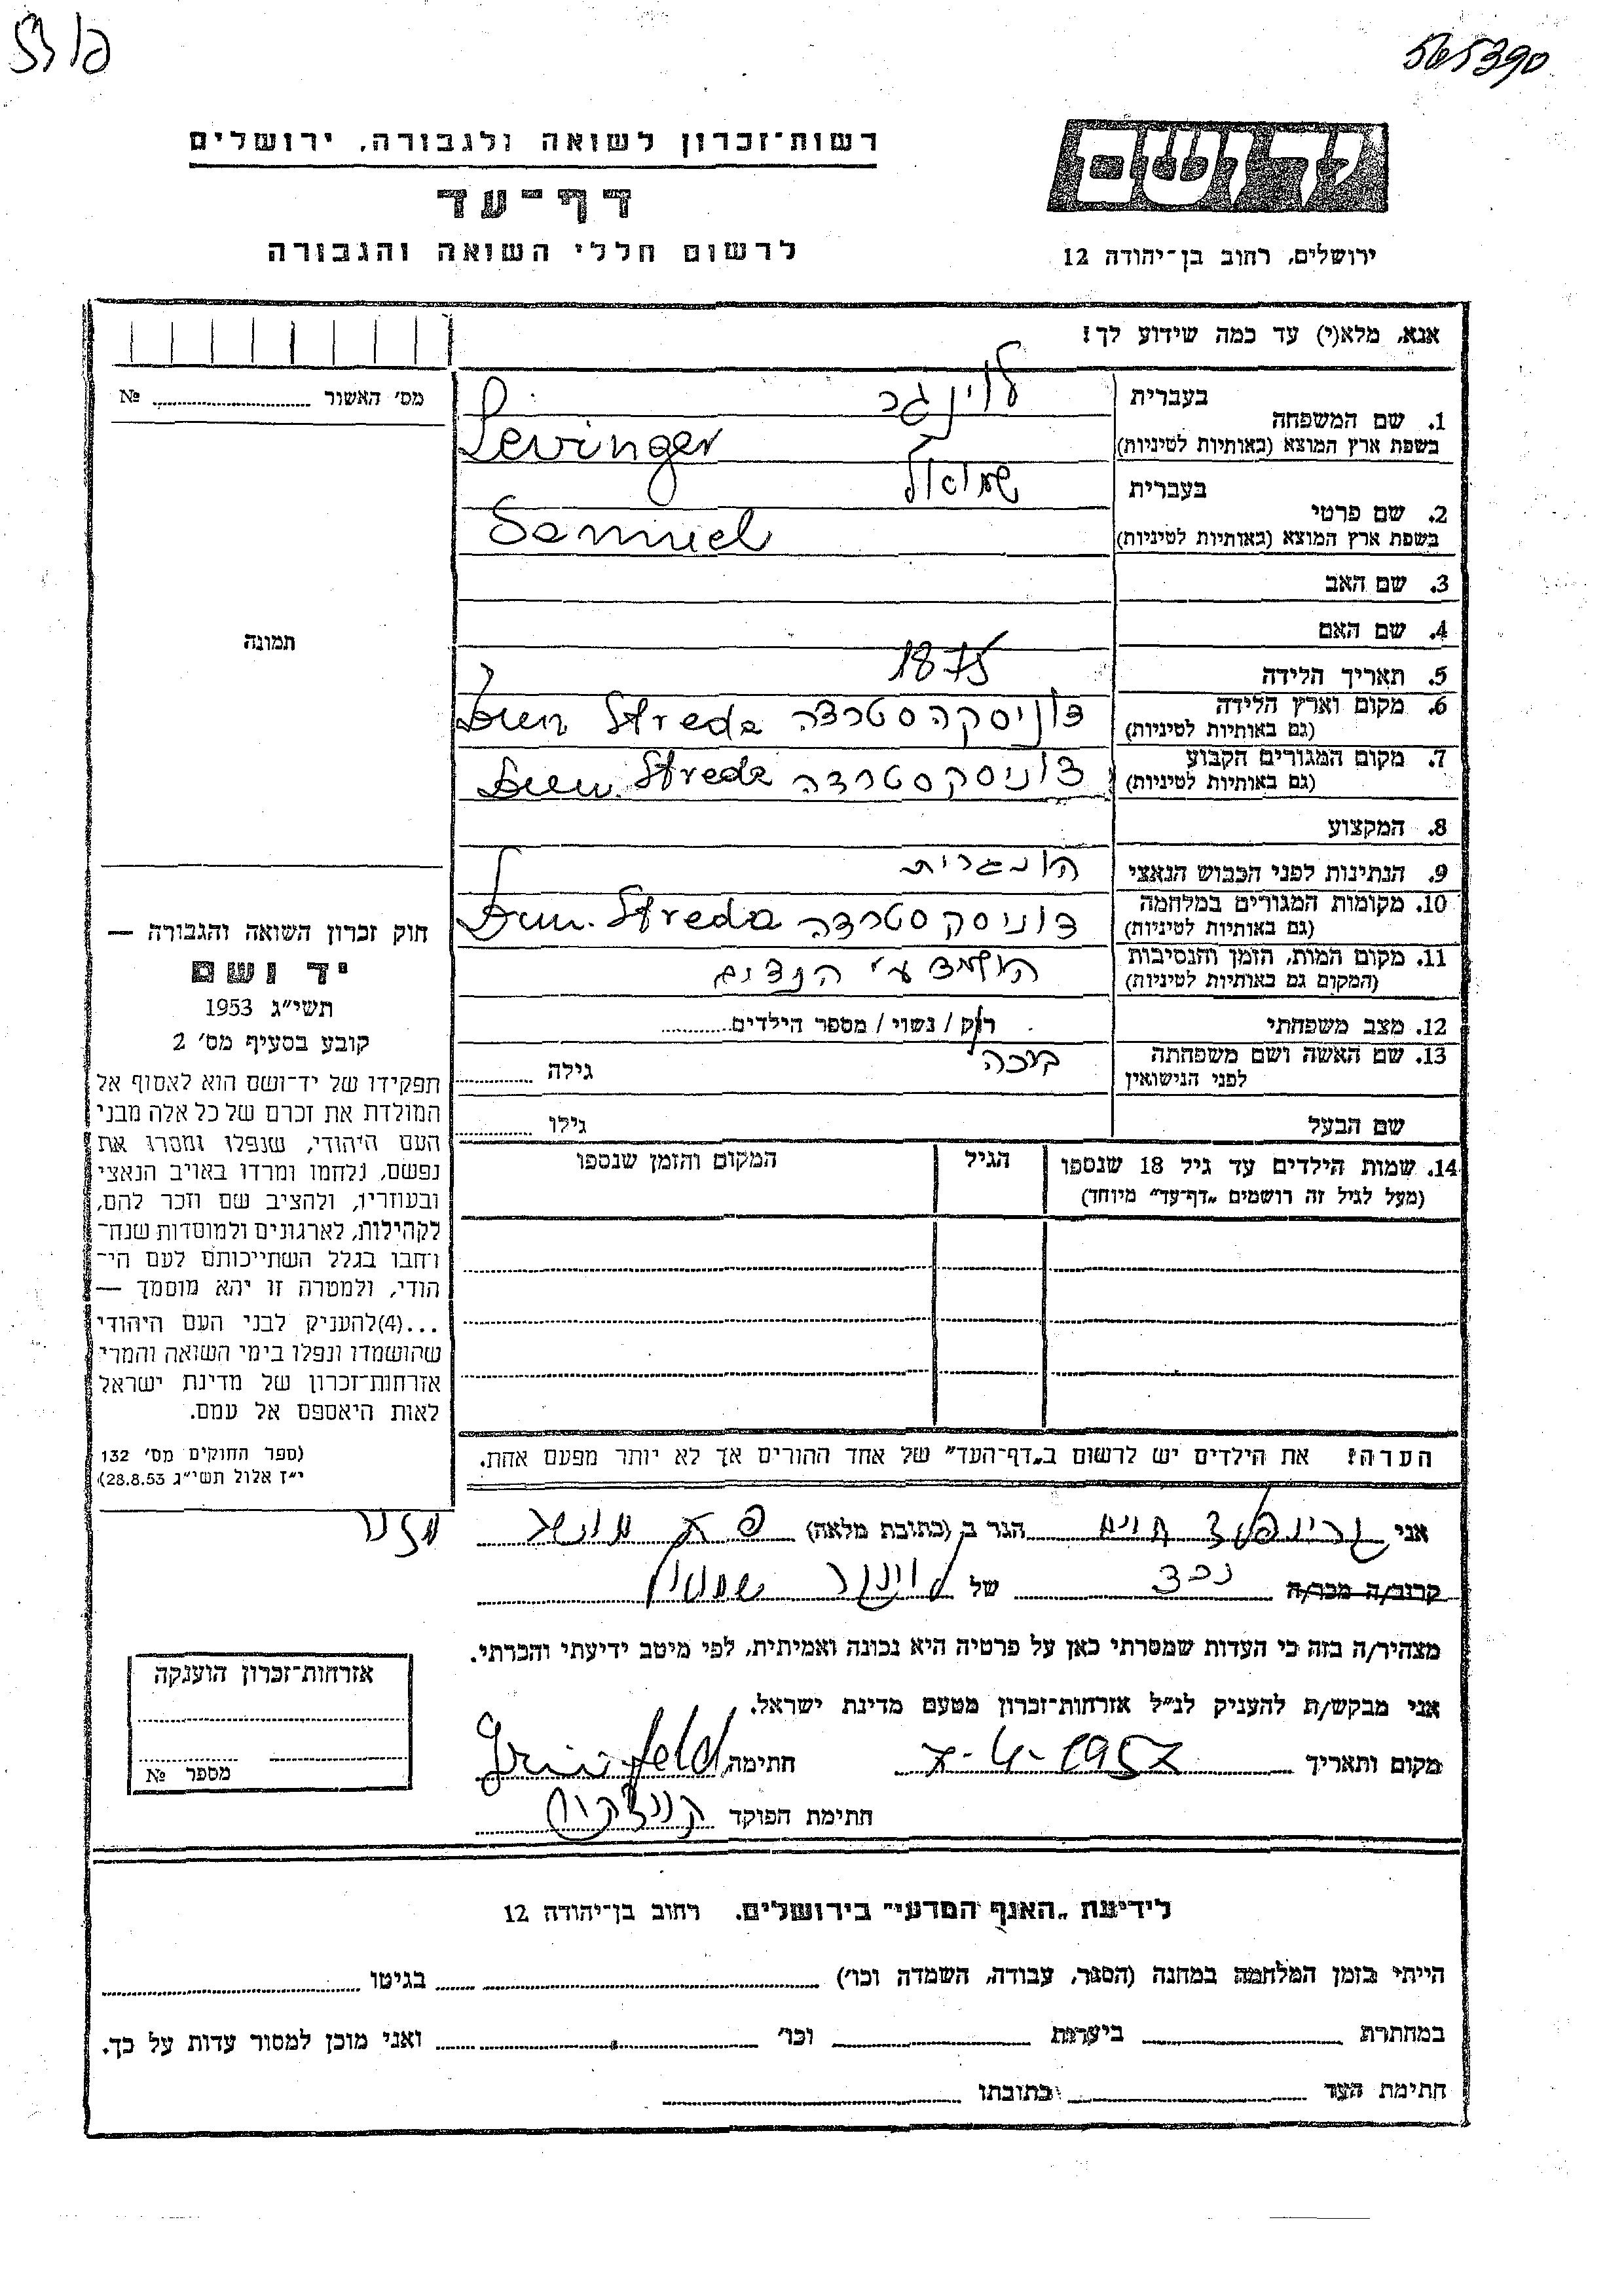 565390
רשות־זכרון לשואה ולגבורה, ירושלים
דף־עד
לרשום חללי השואה והגבורה
יד ושם
ירושלים, רחוב בן־יהודה 12
אנא, מלא(י) עד כמה שידוע לך!
מס׳ האשור № 
תמונה
1. שם המשפחה בעברית לוינגר
בשפת ארץ המוצא (באותיות לטיניות) Levinger
2. שם פרטי בעברית שמואל
בשפת ארץ המוצא (באותיות לטיניות) Samuel
3. שם האב
4. שם האם
5. תאריך הלידה 1875
6. מקום וארץ הלידה (גם באותיות לטיניות) דוניסקה סטרדה Dun Streda
7. מקום המגורים הקבוע (גם באותיות לטיניות) דוניסק סטרדה Dun. Streda
8. המקצוע
9. הנתינות לפני הכבוש הנאצי הונגרית
10. מקומות המגורים במלחמה (גם באותיות לטיניות) דוניסק סטרדה Dun. Streda
11. מקום המות, הזמן והנסיבות (המקום גם באותיות לטיניות) הושמד ע״י הנצים
12. מצב משפחתי רוק / נשוי / מספר הילדים
13. שם האשה ושם משפחתה לפני הנישואין גילה
שם הבעל גילו
14. שמות הילדים עד גיל 18 שנספו הגיל המקום והזמן שנספו
(מעל לגיל זה רושמים „דף־עד״ מיוחד)
הערה! את הילדים יש לרשום ב„דף־העד״ של אחד ההורים אך לא יותר מפעם אחת.
חוק זכרון השואה והגבורה —
יד ושם
תשי״ג 1953
קובע בסעיף מס׳ 2
תפקידו של יד־ושם הוא לאסוף אל
המולדת את זכרם של כל אלה מבני
העם היהודי, שנפלו ומסרו את
נפשם, נלחמו ומרדו באויב הנאצי
ובעוזריו, ולהציב שם וזכר להם,
לקהילות, לארגונים ולמוסדות שנח־
רחבו בגלל השתייכותם לעם הי־
הודי, ולמטרה זו יהא מוסמך —
...(4)להעניק לבני העם היהודי
שהושמדו ונפלו בימי השואה והמרי
אזרחות־זכרון של מדינת ישראל
לאות היאספם אל עמם.
(ספר החוקים מס׳ 132
י״ז אלול תשי״ג 28.8.53)
אני גרינפלד חיים הגר ב (כתובת מלאה)
קרוב/ה מכר/ה נכד של לוינגר שמואל
מצהיר/ה בזה כי העדות שמסרתי כאן על פרטיה היא נכונה ואמיתית, לפי מיטב ידיעתי והכרתי.
אני מבקש/ת להעניק לנ״ל אזרחות־זכרון מטעם מדינת ישראל.
מקום ותאריך 7-4-1957 חתימה Grünfeld
חתימת הפוקד
אזרחות־זכרון הוענקה
מספר №
לידיעת „האגף המדעי״ בירושלים. רחוב בן־יהודה 12
הייתי בזמן המלחמה במחנה (הסגר, עבודה, השמדה וכו׳) בגיטו
במחתרת ביערות וכו׳ ואני מוכן למסור עדות על כך.
חתימת העד כתובתו